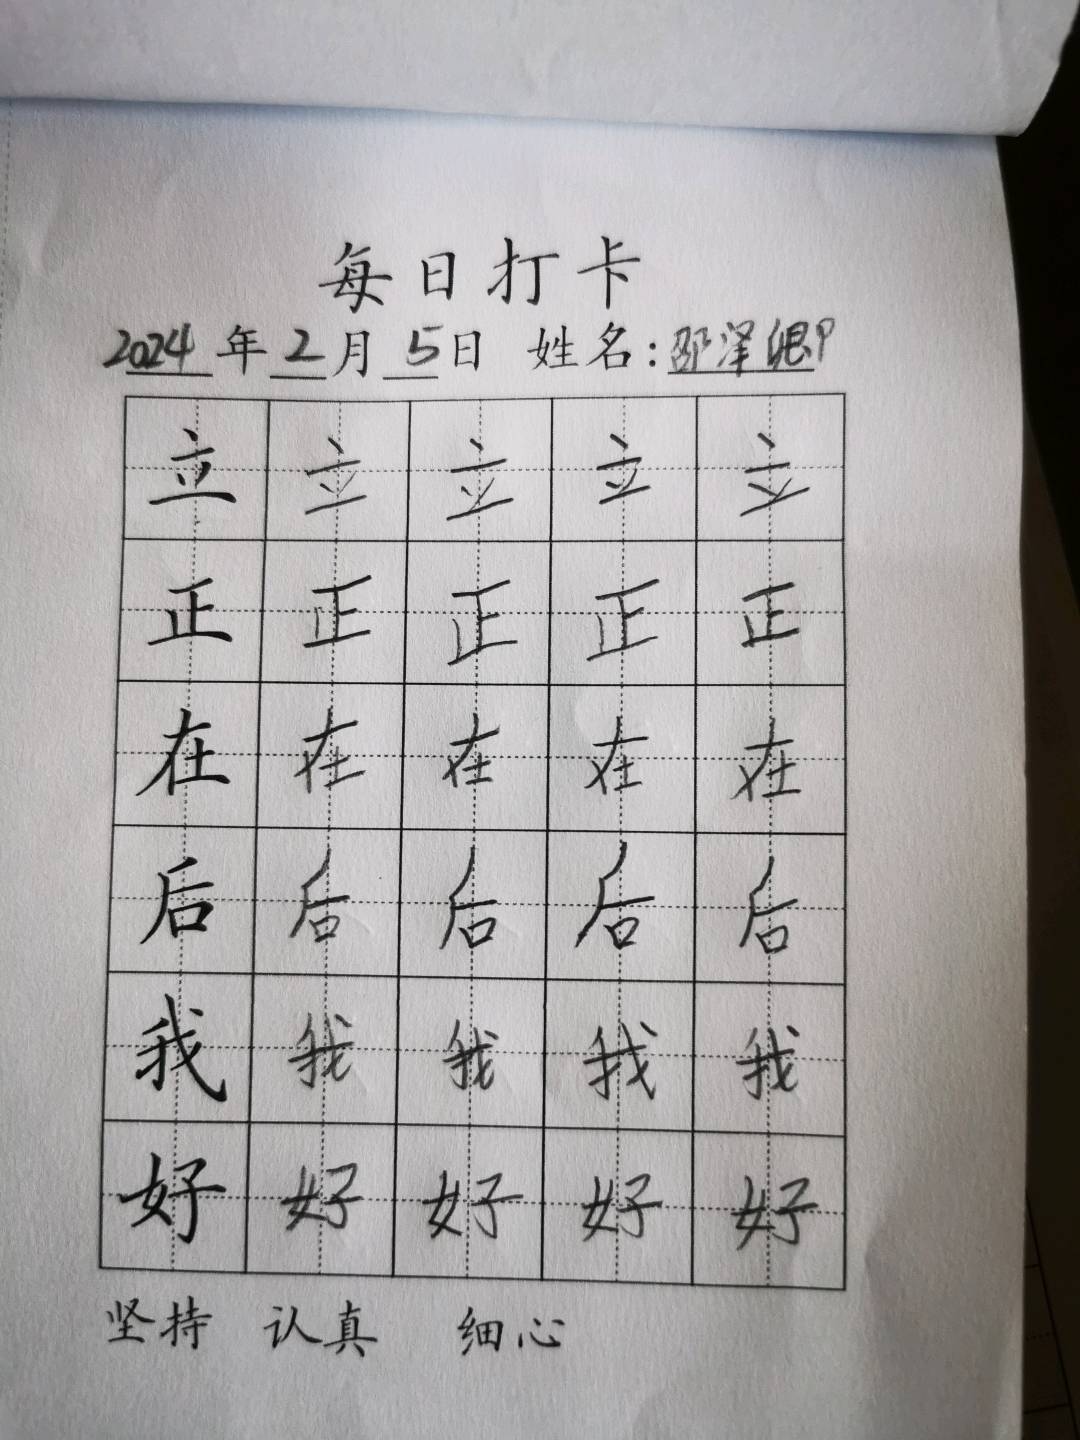 每日打卡
2024年2月5日 姓名:邵泽卿
立立立立立
正正正正正
在在在在在
后后后后后
我我我我我
好好好好好
坚持 认真 细心